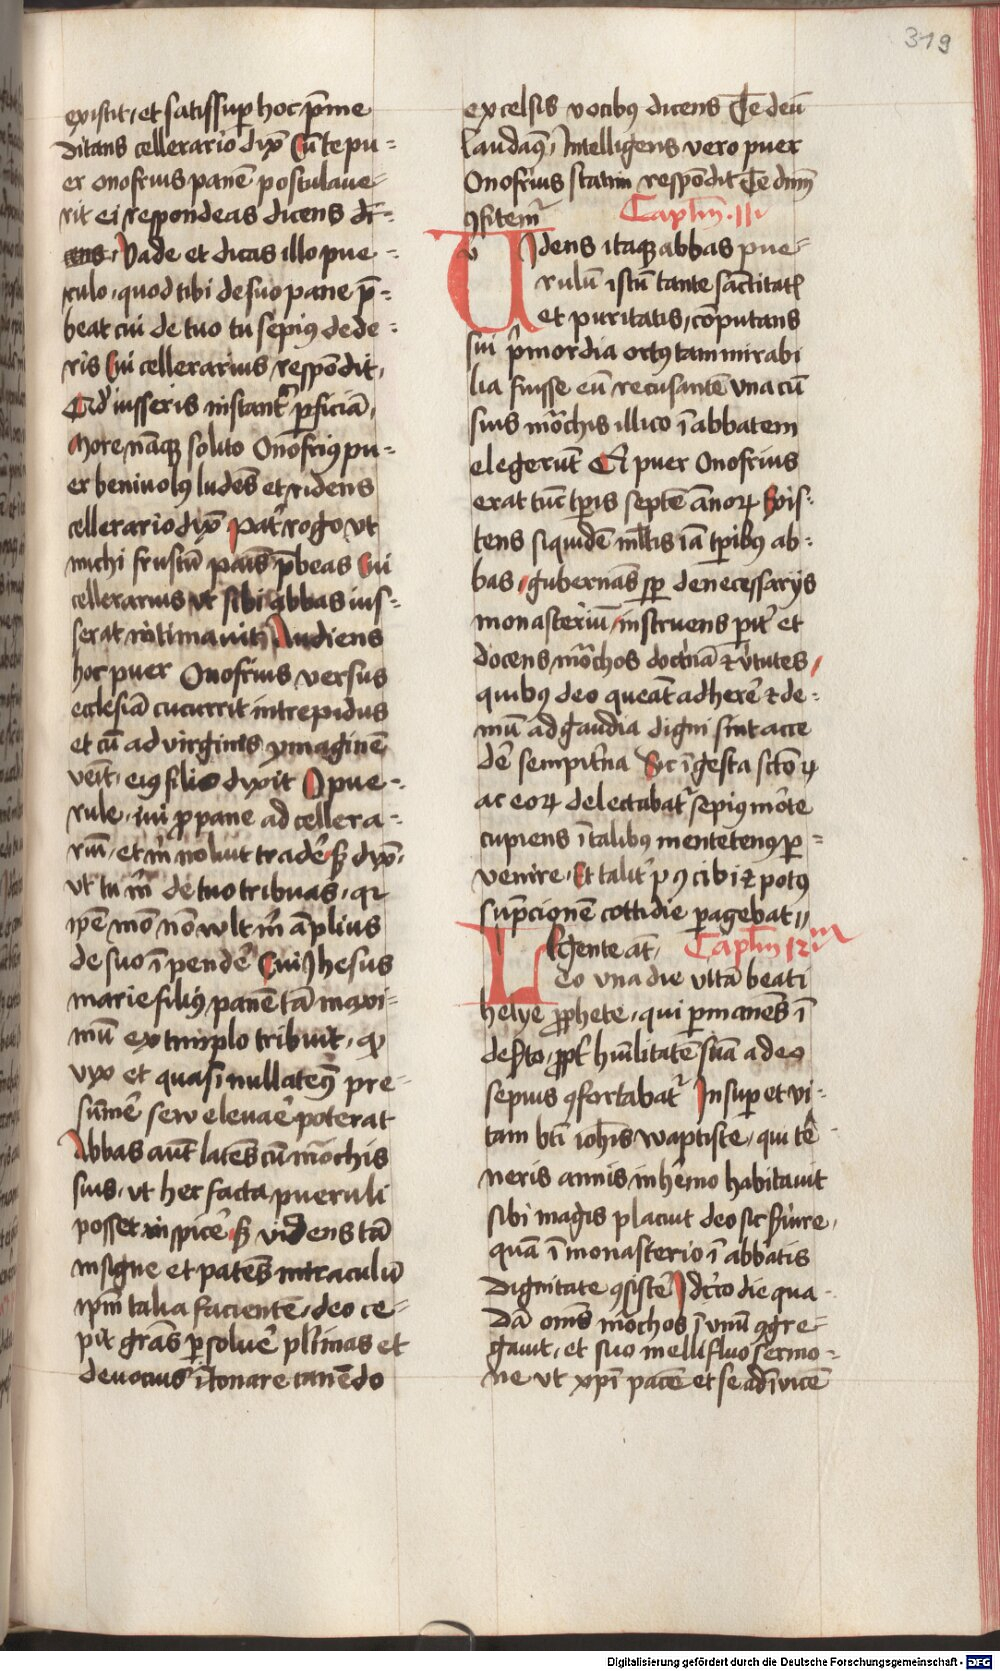 319
existit, et satis sup hoc p̄me
ditans cellerario dix̄ Cū te pu-
er onofrius panē postulaue-
rit ei respondeas dicens di-
Vade et dicas illo pue-
rulo, quod tibi de suo pane p̄-
beat cui de tuo tu sepiꝰ dede-
ris Cui cellerarius respōdit,
Qd̓ iusseris instant̓ ꝑficiā,
More nāqꝫ solito Onofriꝰ pu-
er beniuolꝰ ludēs et ridens
cellerario dix̄ Pat̓ rogo vt
michi frustū pais p̄beas Cui
cellerarius vt sibi abbas ius-
serat intimauit Audiens
hoc puer Onofrius versus
ecclesiā cucurrit intrepidus
et cū ad virginis ymaginē
venīt, eiꝰ filio dixit O pue-
rule, iui ꝓ pane ad cellera-
riū, et m̄ noluit trade̓ sꝫ dix̄,
vt tu m̄ de tuo tribuas, qꝛ
ip̄e mō nō wlt m̄ āplius
de suo īpende̓ Cui Jhesus
marie filiꝰ panē tā maxi-
mū extimplo tribuit, qͦ
vix et quasi nullatenꝰ pre-
sūme̓ seu eleuae̓ poterat
Abbas aut̄ latēs cū mōchis
suis, vt hec facta pueruli
posset inspice̓ sꝫ videns tā
insigne et patēs miraculū
ip̄m talia facientē, deo ce-
pit grās ꝑsolue̓ pl̄imas et
deuocius ītonare canēdo
excelsis vocibꝰ dicens Te deū
laudamꝰ, Intelligens vero puer
Onofrius statim respōdit Te dnm̄
ꝯfitem̓
Caplm̄ .III.
Videns itaqꝫ abbas pue-
rulū istū tante sāctitatꝭ
et puritatis, cōputans
sui p̓mordia ortꝰ tam mirabi
lia fuisse eū recusantē vna cū
suis mōchis illico ī abbatem
elegerūt Et puer Onofrius
erat tūc tp̄is septē annoꝝ Exis-
tens siquidē ml̄tis iā tp̄ibꝰ ab-
bas, gubernās sp̄ de necessarijs
monasteriū, instruens pit̓ et
docens mōchos doct̓nā ⁊ v̓tutes,
quibꝰ deo queāt adhere̓ ⁊ de-
mū ad gaudia digni sint acce
de̓ sempit̓na Sic ī gesta sctōꝝ
ac eoꝝ delectabat̓ sepiꝰ mōte
cupiens ī talibꝰ mentetenꝰ ꝑ-
venire, Et talit̓ ꝓ ꝯ cibi ⁊ potꝰ
supcionē cottidie ꝑagebat
Caplm̄ IIIIm
Legente at̄,
eo vna die vitā beati
helye ꝓphete, qui ꝑmanēs ī
des̓to, ꝓpt̓ hūilitatē suā a deo
sepius ꝯfortabat̓ Insuꝑ et vi-
tam bt̄i ioh̄is waptiste, qui te
neris annis in h̓emo habitauit
sibi magis placuit deo sic s̓uire,
quā ī monasterio ī abbatis
dignitate ꝯsiste̓ Idcͦco die qua-
dā om̄s mōchos ī vnū ꝯgre-
gauit, et suo mellifluo sermo-
ne vt xp̄i pacē et se adīuicē
Digitalisierung gefördert durch die Deutsche Forschungsgemeinschaft - DFG